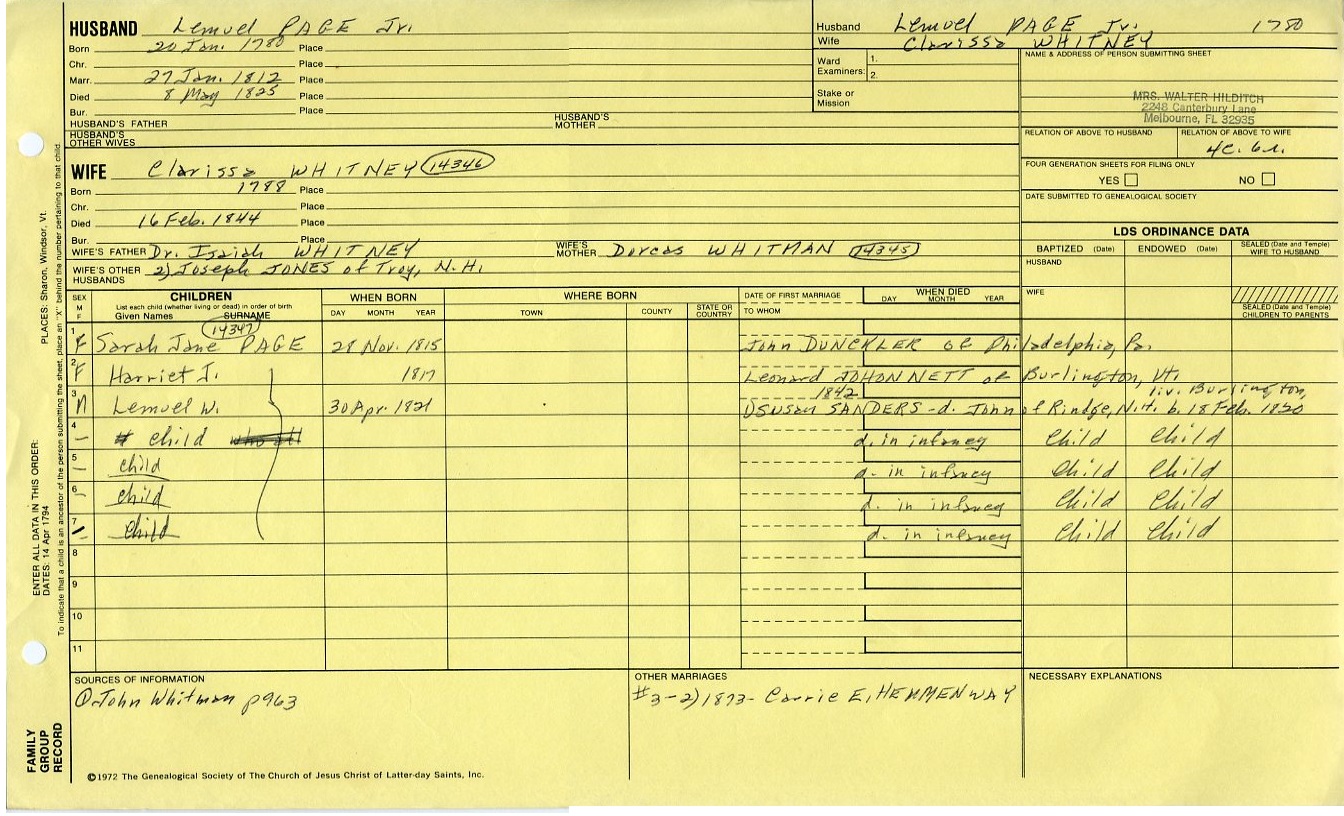 HUSBAND Lemuel PAGE Jr.
Born 20 Jan. 1780 Place
Chr. Place
Marr. 27 Jan. 1812 Place
Died 8 May 1825 Place
Bur. Place
HUSBAND'S FATHER HUSBAND'S MOTHER
HUSBAND'S OTHER WIVES
Husband Lemuel PAGE Jr. 1780
Wife Clarissa WHITNEY
Ward Examiners: 1.
2.
Stake or Mission
NAME & ADDRESS OF PERSON SUBMITTING SHEET
MRS. WALTER HILDITCH
2248 Canterbury Lane
Melbourne, FL 32935
RELATION OF ABOVE TO HUSBAND RELATION OF ABOVE TO WIFE
4C. 6r.
FOUR GENERATION SHEETS FOR FILING ONLY
YES NO
DATE SUBMITTED TO GENEALOGICAL SOCIETY
WIFE Clarissa WHITNEY 14346
Born 1788 Place
Chr. Place
Died 16 Feb. 1844 Place
Bur. Place
WIFE'S FATHER Dr. Isaiah WHITNEY WIFE'S MOTHER Dorcas WHITMAN 14345
WIFE'S OTHER HUSBANDS 2) Joseph JONES of Troy, N.H.
LDS ORDINANCE DATA
BAPTIZED (Date) ENDOWED (Date) SEALED (Date and Temple) WIFE TO HUSBAND
HUSBAND
WIFE
SEALED (Date and Temple) CHILDREN TO PARENTS
SEX M F CHILDREN WHEN BORN WHERE BORN DATE OF FIRST MARRIAGE WHEN DIED
List each child (whether living or dead) in order of birth DAY MONTH YEAR TOWN COUNTY STATE OR COUNTRY TO WHOM DAY MONTH YEAR
Given Names SURNAME
14347
1 F Sarah Jane PAGE 28 Nov. 1815 John DUNCKLER of Philadelphia, Pa.
2 F Harriet J. 1817 Leonard JOHONNETT of Burlington, Vt.
1842 liv. Burlington,
3 M Lemuel W. 30 Apr. 1821 1) Susan SANDERS - d. John of Rindge, N.H. b. 18 Feb. 1820
4 - child who all d. in infancy Child Child
5 - child d. in infancy Child Child
6 - child d. in infancy Child Child
7 - child d. in infancy Child Child
8
9
10
11
SOURCES OF INFORMATION
① John Whitman p963
OTHER MARRIAGES
#3-2) 1873- Carrie E. HEMMENWAY
NECESSARY EXPLANATIONS
©1972 The Genealogical Society of The Church of Jesus Christ of Latter-day Saints, Inc.
FAMILY GROUP RECORD
ENTER ALL DATA IN THIS ORDER:
DATES: 14 Apr 1794 PLACES: Sharon, Windsor, Vt.
To indicate that a child is an ancestor of the person submitting the sheet, place an "X" behind the number pertaining to that child.